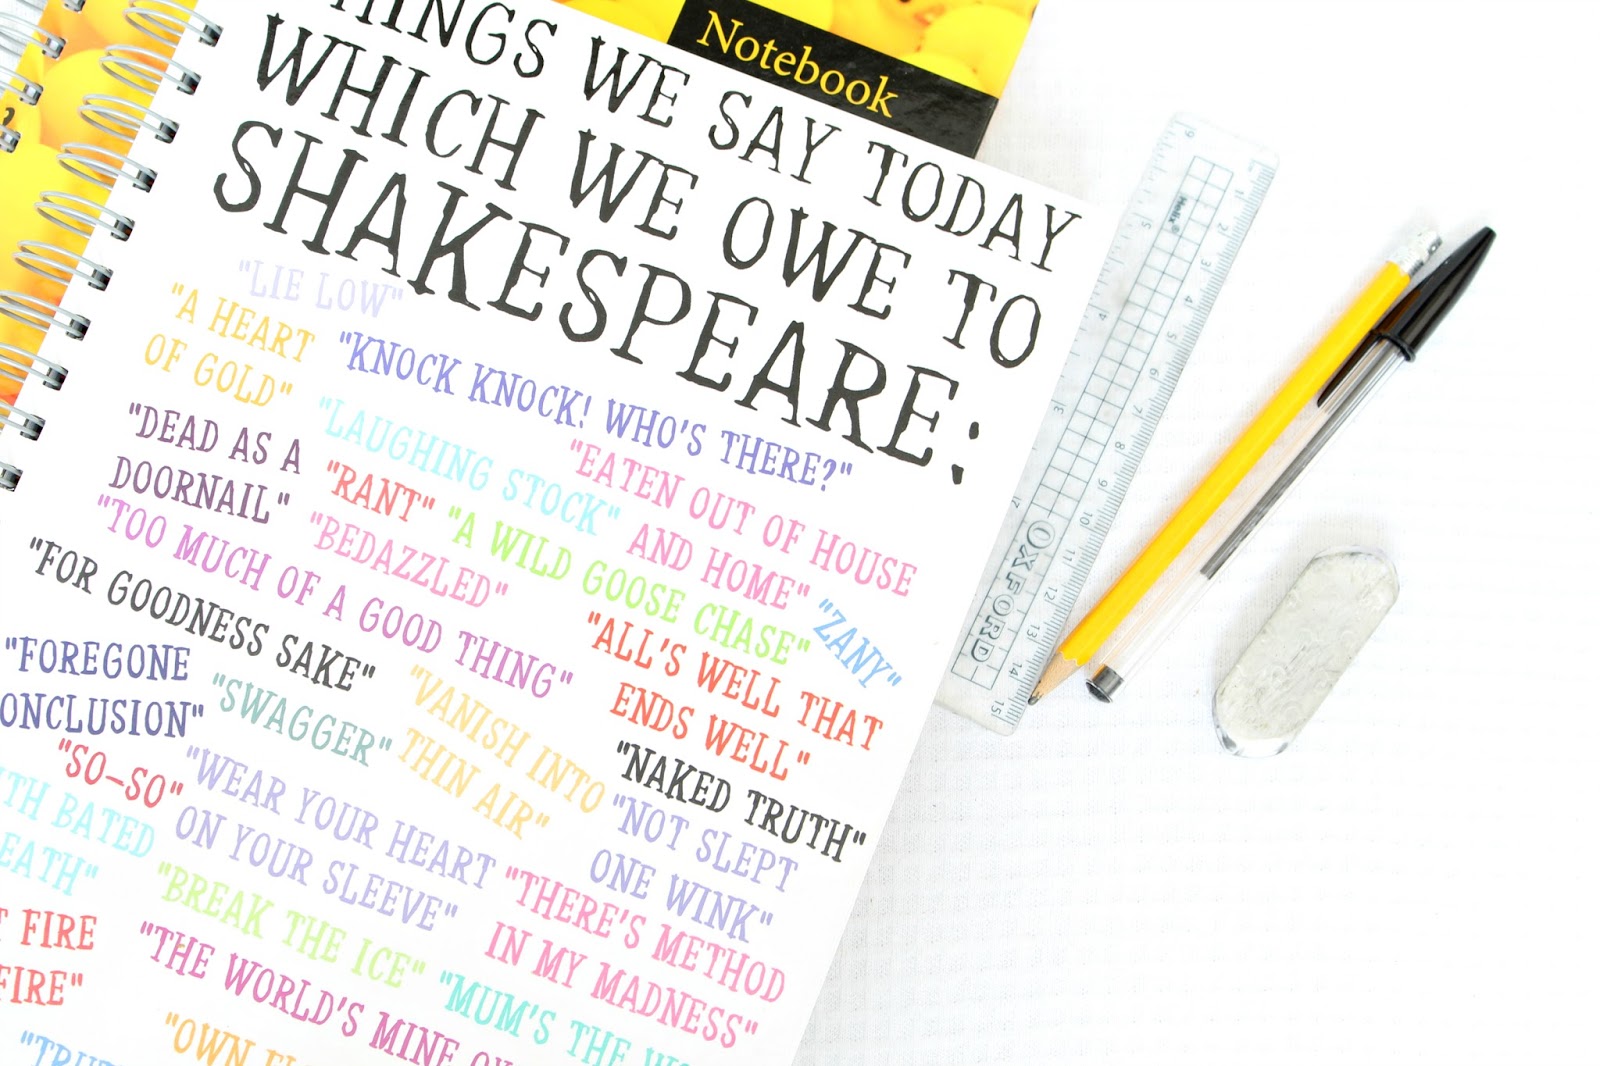 Notebook
THINGS WE SAY TODAY
WHICH WE OWE TO
SHAKESPEARE:
"LIE LOW"
"A HEART
OF GOLD"
"KNOCK KNOCK! WHO'S THERE?"
"DEAD AS A
DOORNAIL"
"LAUGHING STOCK"
"EATEN OUT OF HOUSE
AND HOME"
"RANT"
"A WILD GOOSE CHASE"
"TOO MUCH OF A GOOD THING"
"BEDAZZLED"
"ZANY"
"FOR GOODNESS SAKE"
"ALL'S WELL THAT
ENDS WELL"
"FOREGONE
ONCLUSION"
"SWAGGER"
"VANISH INTO
THIN AIR"
"NAKED TRUTH"
"SO-SO"
"WEAR YOUR HEART
ON YOUR SLEEVE"
"NOT SLEPT
ONE WINK"
TH BATED
EATH"
"BREAK THE ICE"
"THERE'S METHOD
IN MY MADNESS"
FIRE
FIRE"
"THE WORLD'S MINE
"MUM'S THE
"OWN
Helix
OXFORD
1 2 3 4 5 6 7 8 9 10 11 12 13 14 15